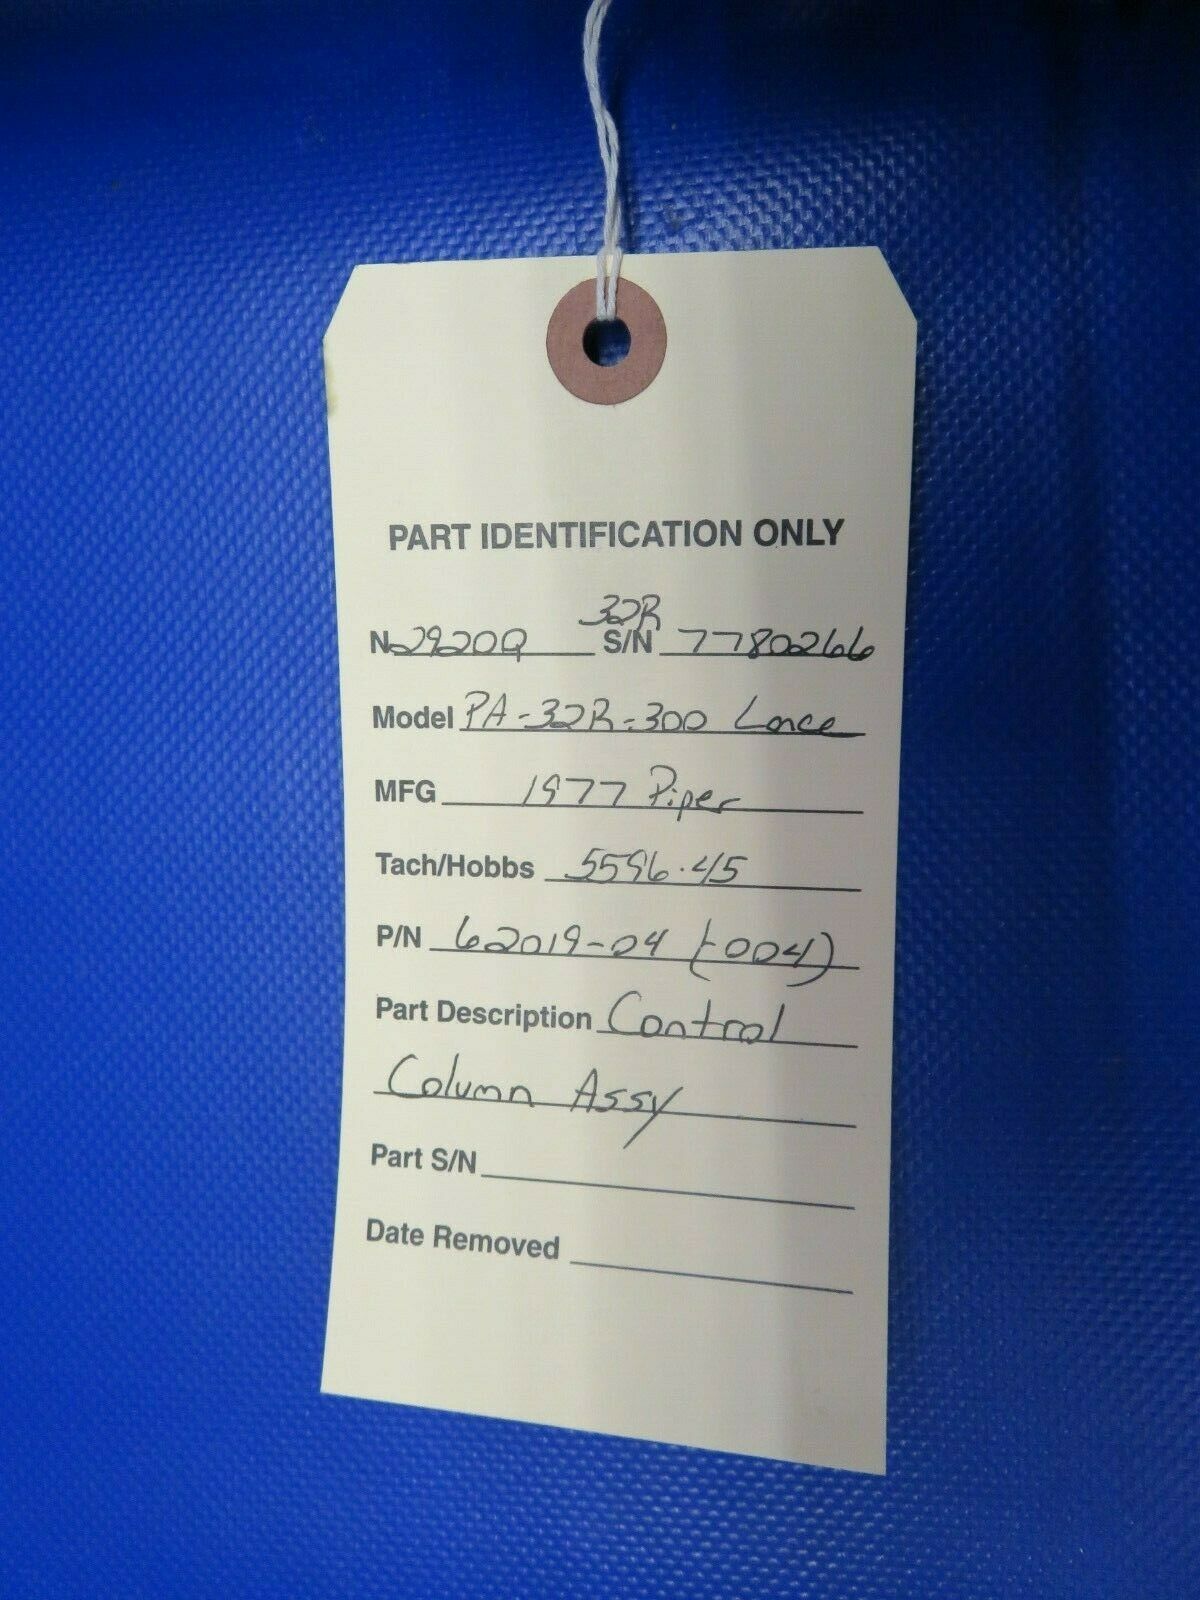 PART IDENTIFICATION ONLY
32R
N 2920Q S/N 7780266
Model PA-32R-300 Lance
MFG 1977 Piper
Tach/Hobbs 5596.45
P/N 62019-04 (-004)
Part Description Control
Column Assy
Part S/N
Date Removed